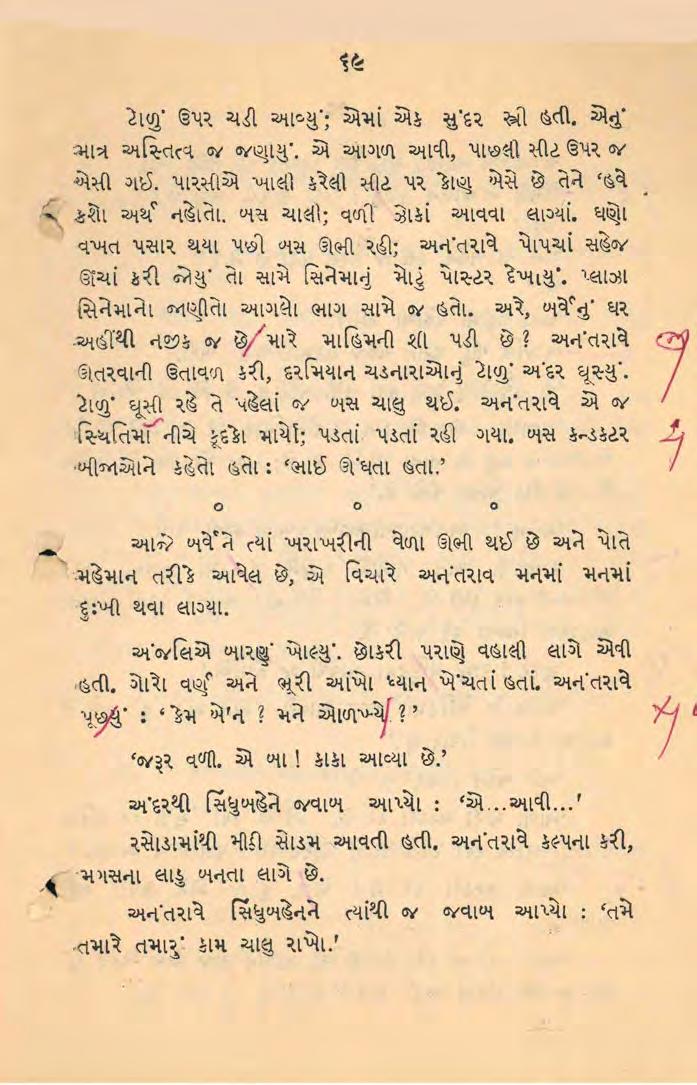 ૬૯
ટોળું ઉપર ચડી આવ્યું; એમાં એક સુંદર સ્ત્રી હતી. એનું
માત્ર અસ્તિત્વ જ જણાયું. એ આગળ આવી, પાછલી સીટ ઉપર જ
બેસી ગઈ. પારસીએ ખાલી કરેલી સીટ પર કોણ બેસે છે તેને ‘હવે
કશો અર્થ નહોતો. બસ ચાલી; વળી ઝોકાં આવવા લાગ્યાં. ઘણો
વખત પસાર થયા પછી બસ ઊભી રહી; અનંતરાવે પોપચાં સહેજ
ઊંચાં કરી જોયું તો સામે સિનેમાનું મોટું પોસ્ટર દેખાયું. પ્લાઝા
સિનેમાનો જાણીતો આગલો ભાગ સામે જ હતો. અરે, બર્વેનું ઘર
અહીંથી નજીક જ છે મારે માહિમની શી પડી છે? અનંતરાવે
ઊતરવાની ઉતાવળ કરી, દરમિયાન ચડનારાઓનું ટોળું અંદર ઘૂસ્યું.
ટોળું ઘૂસી રહે તે પહેલાં જ બસ ચાલુ થઈ. અનંતરાવે એ જ
સ્થિતિમાં નીચે કૂદકો માર્યો; પડતાં પડતાં રહી ગયા. બસ કન્ડકટર
બીજાઓને કહેતો હતો : ‘ભાઈ ઊંઘતા હતા.’
૦ ૦ ૦
આજે બર્વેને ત્યાં ખરાખરીની વેળા ઊભી થઈ છે અને પોતે
મહેમાન તરીકે આવેલ છે, એ વિચારે અનંતરાવ મનમાં મનમાં
દુઃખી થવા લાગ્યા.
અંજલિએ બારણું ખોલ્યું. છોકરી પરાણે વહાલી લાગે એવી
હતી. ગોરો વર્ણ અને ભૂરી આંખો ધ્યાન ખેંચતાં હતાં. અનંતરાવે
પૂછ્યું : ‘કેમ બે'ન ? મને ઓળખ્યો ?’
‘જરૂર વળી. એ બા ! કાકા આવ્યા છે.’
અંદરથી સિંધુબહેને જવાબ આપ્યો : ‘એ...આવી...’
રસોડામાંથી મીઠી સોડમ આવતી હતી. અનંતરાવે કલ્પના કરી,
મગસના લાડુ બનતા લાગે છે.
અનંતરાવે સિંધુબહેનને ત્યાંથી જ જવાબ આપ્યો : ‘તમે
તમારે તમારું કામ ચાલુ રાખો.’